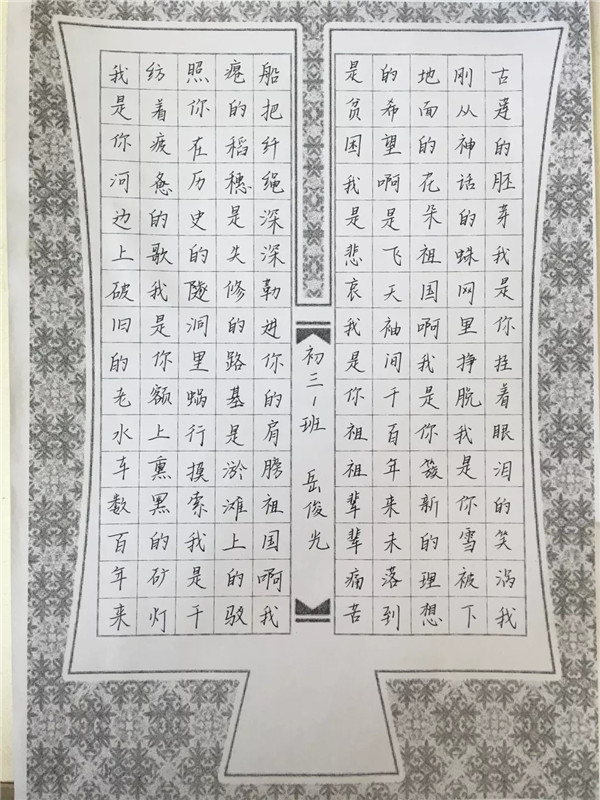 我是你河边上破旧的老水车数百年来
纺着疲惫的歌我是你额上熏黑的矿灯
照你在历史的隧洞里蜗行摸索我是干
瘪的稻穗是失修的路基是淤滩上的驳
船把纤绳深深勒进你的肩膀祖国啊我
初三1班 岳俊光
是贫困我是悲哀我是你祖祖辈辈痛苦
的希望啊是飞天袖间千百年来未落到
地面的花朵祖国啊我是你簇新的理想
刚从神话的蛛网里挣脱我是你雪被下
古莲的胚芽我是你挂着眼泪的笑涡我